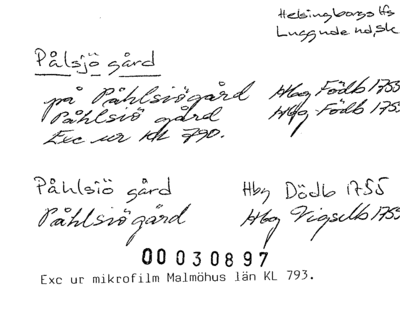 Helsingborgs lfs
Luggude hd, Sk
Pålsjö gård
på Påhlsiögård Hbg Födb 1755
Påhlsiö gård Hbg Födb 1755
Exc ur KL 790.
Påhlsiö gård Hbg Dödb 1755
Påhlsiögård Hbg Vigselb 1755
00030897
Exc ur mikrofilm Malmöhus län KL 793.